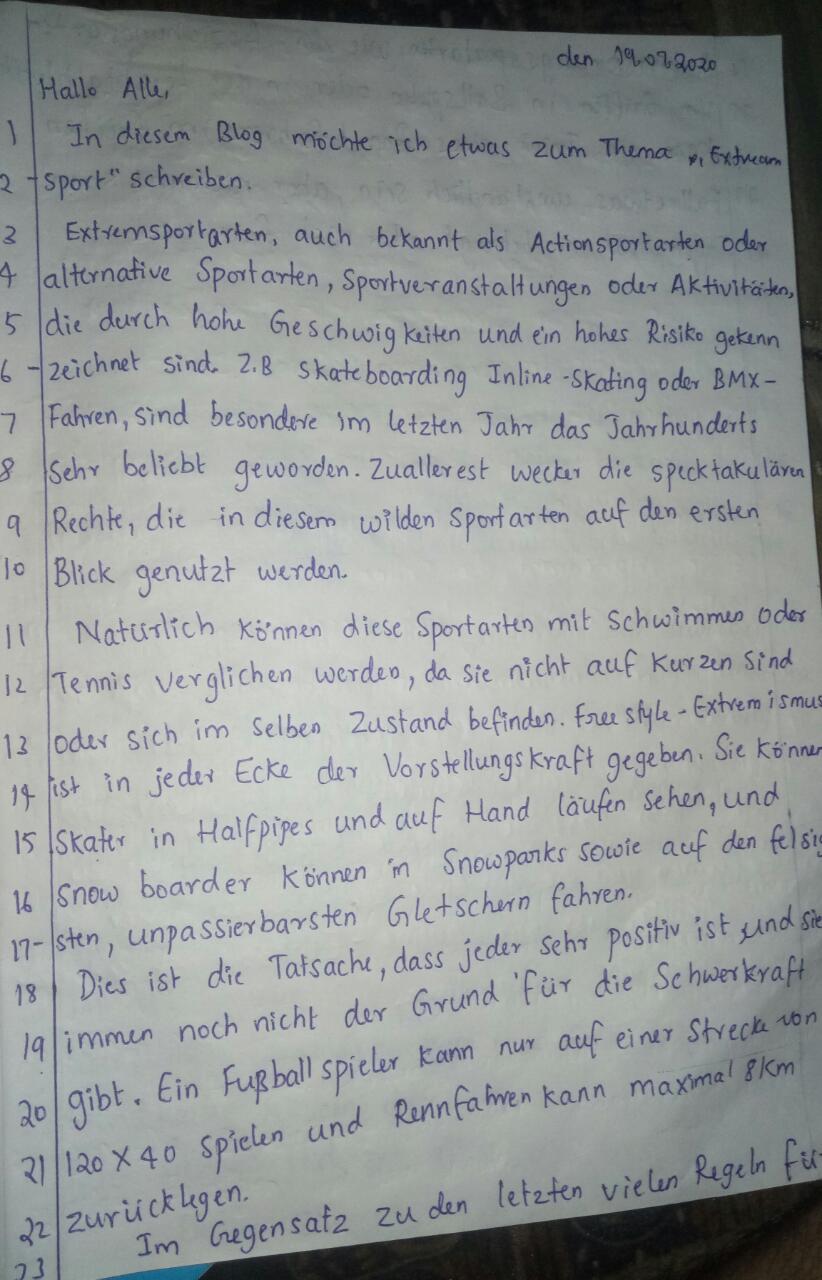 den 19.07.2020
Hallo Alle,
1 In diesem Blog möchte ich etwas zum Thema „Extream
2 -sport" schreiben.
3 Extremsportarten, auch bekannt als Actionsportarten oder
4 alternative Sportarten, Sportveranstaltungen oder Aktivitäten,
5 die durch hohe Geschwigkeiten und ein hohes Risiko gekenn
6 -zeichnet sind. Z.B Skateboarding Inline-Skating oder BMX-
7 Fahren, sind besondere im letzten Jahr das Jahrhunderts
8 Sehr beliebt geworden. Zuallerest wecker die specktakulären
9 Rechte, die in diesem wilden Sportarten auf den ersten
10 Blick genutzt werden.
11 Natürlich können diese Sportarten mit Schwimmen oder
12 Tennis verglichen werden, da sie nicht auf Kurzen sind
13 oder sich im selben Zustand befinden. Free style-Extremismus
14 ist in jeder Ecke der Vorstellungskraft gegeben. Sie können
15 Skater in Halfpipes und auf Hand läufen sehen, und
16 Snow boarder können in Snowparks sowie auf den felsig
17 -sten, unpassierbarsten Gletschern fahren.
18 Dies ist die Tatsache, dass jeder sehr positiv ist und sie
19 immen noch nicht der Grund für die Schwerkraft
20 gibt. Ein Fußballspieler kann nur auf einer Strecke von
21 120 X 40 spielen und Rennfahren kann maximal 8km
22 zurücklegen.
23 Im Gegensatz zu den letzten vielen Regeln für